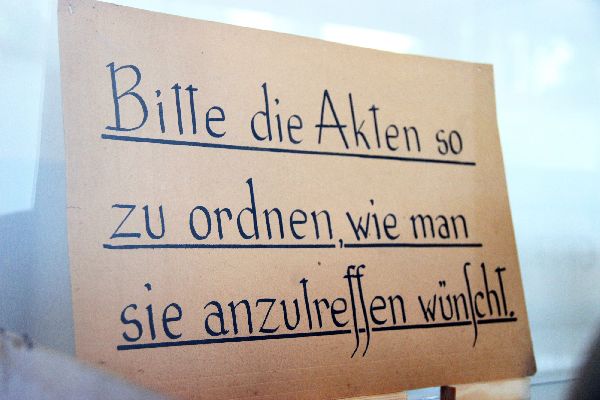 Bitte die Akten so
zu ordnen, wie man
sie anzutreffen wünſcht.